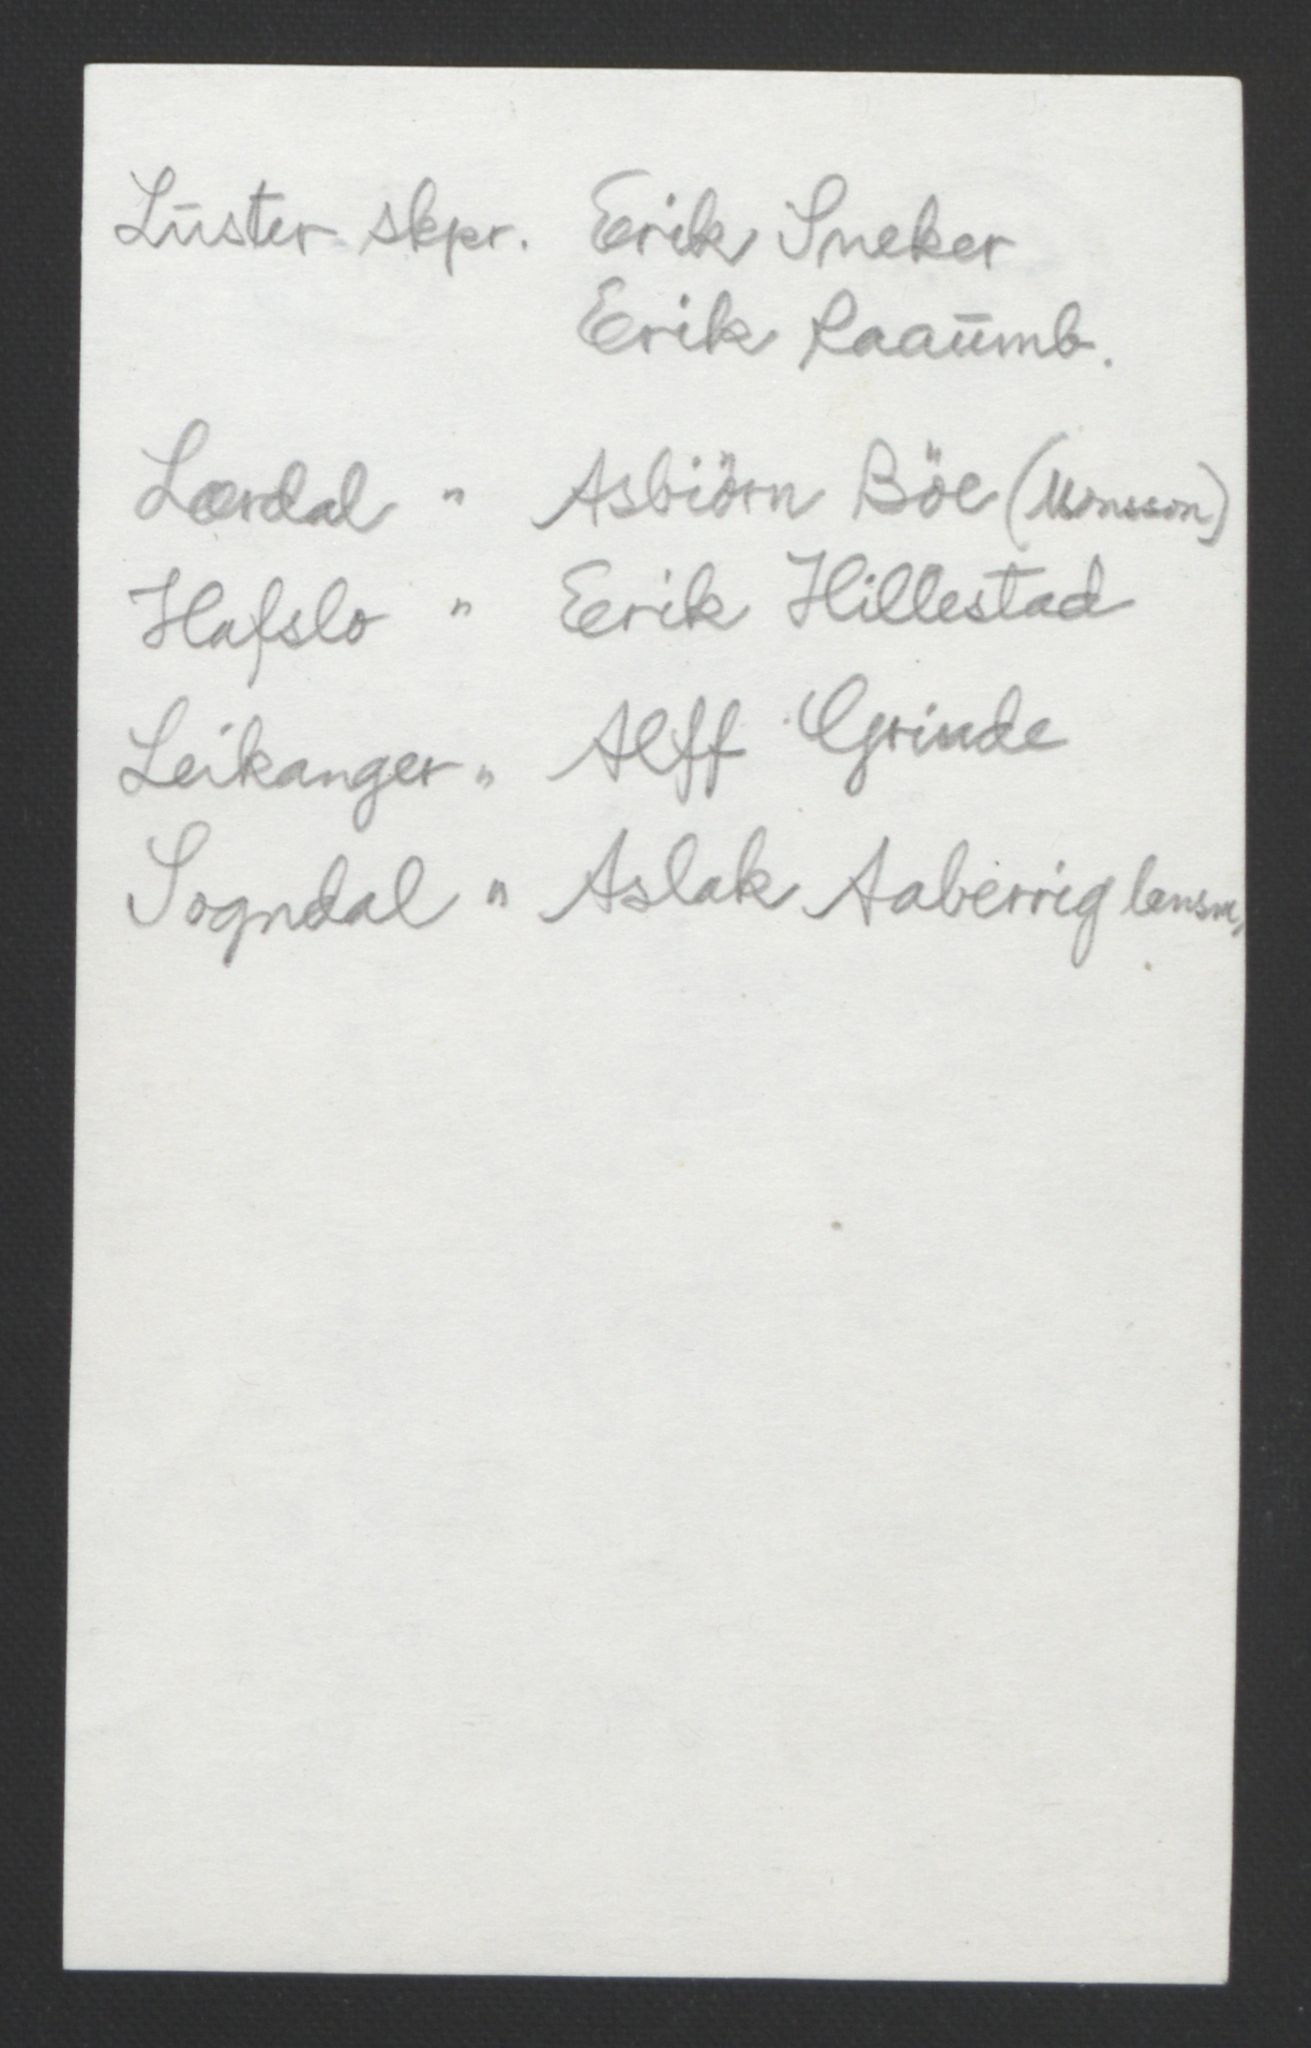 Lūster skpr. Erik Sneker
Erik Raaūmb.
Lærdal " Asbiörn Böe (Monsson)
Hafslo " Erik Hillestad
Leikanger " Alff Grinde
Sogndal " Aslak Aaberrig lensm.